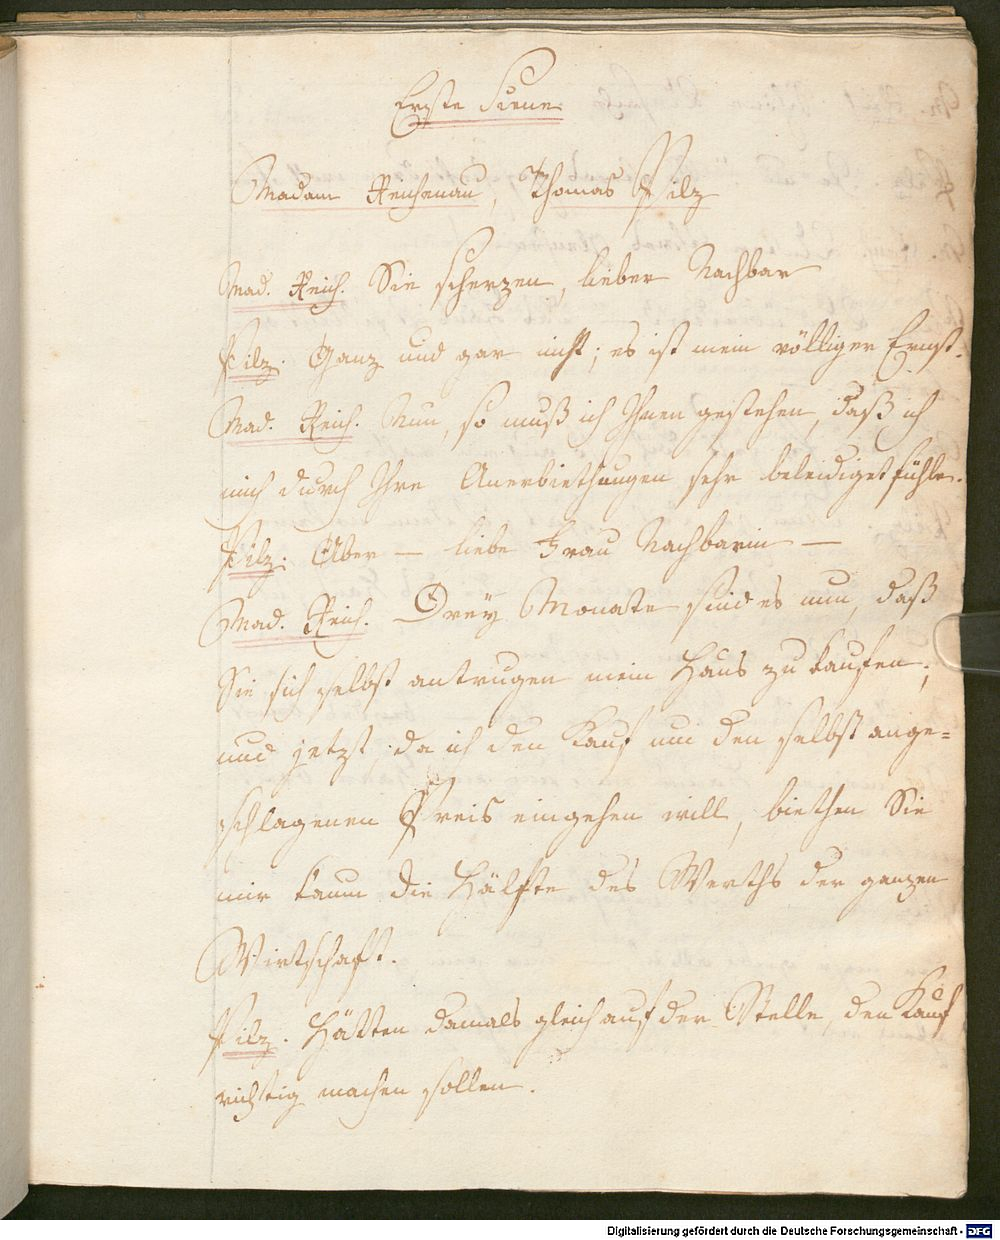 Erste Scene
Madam Reichenau, Thomas Pilz
Mad. Reich. Sie scherzen, lieber Nachbar
Pilz. Ganz und gar nicht; es ist mein völliger Ernst.
Mad. Reich. Nun, so muß ich Ihnen gestehen, daß ich
mich durch Ihre Anerbiethungen sehr beleidiget fühle.
Pilz. Aber — liebe Frau Nachbarin —
Mad. Reich. Drey Monate sind es nun, daß
Sie sich selbst antrugen mein Haus zu kaufen;
und jetzt, da ich den Kauf um den selbst ange=
schlagenen Preis eingehen will, biethen Sie
mir kaum die Hälfte des Werths der ganzen
Wirtschaft.
Pilz. Hätten damals gleich auf der Stelle den Kauf
richtig machen sollen.
Digitalisierung gefördert durch die Deutsche Forschungsgemeinschaft - DFG